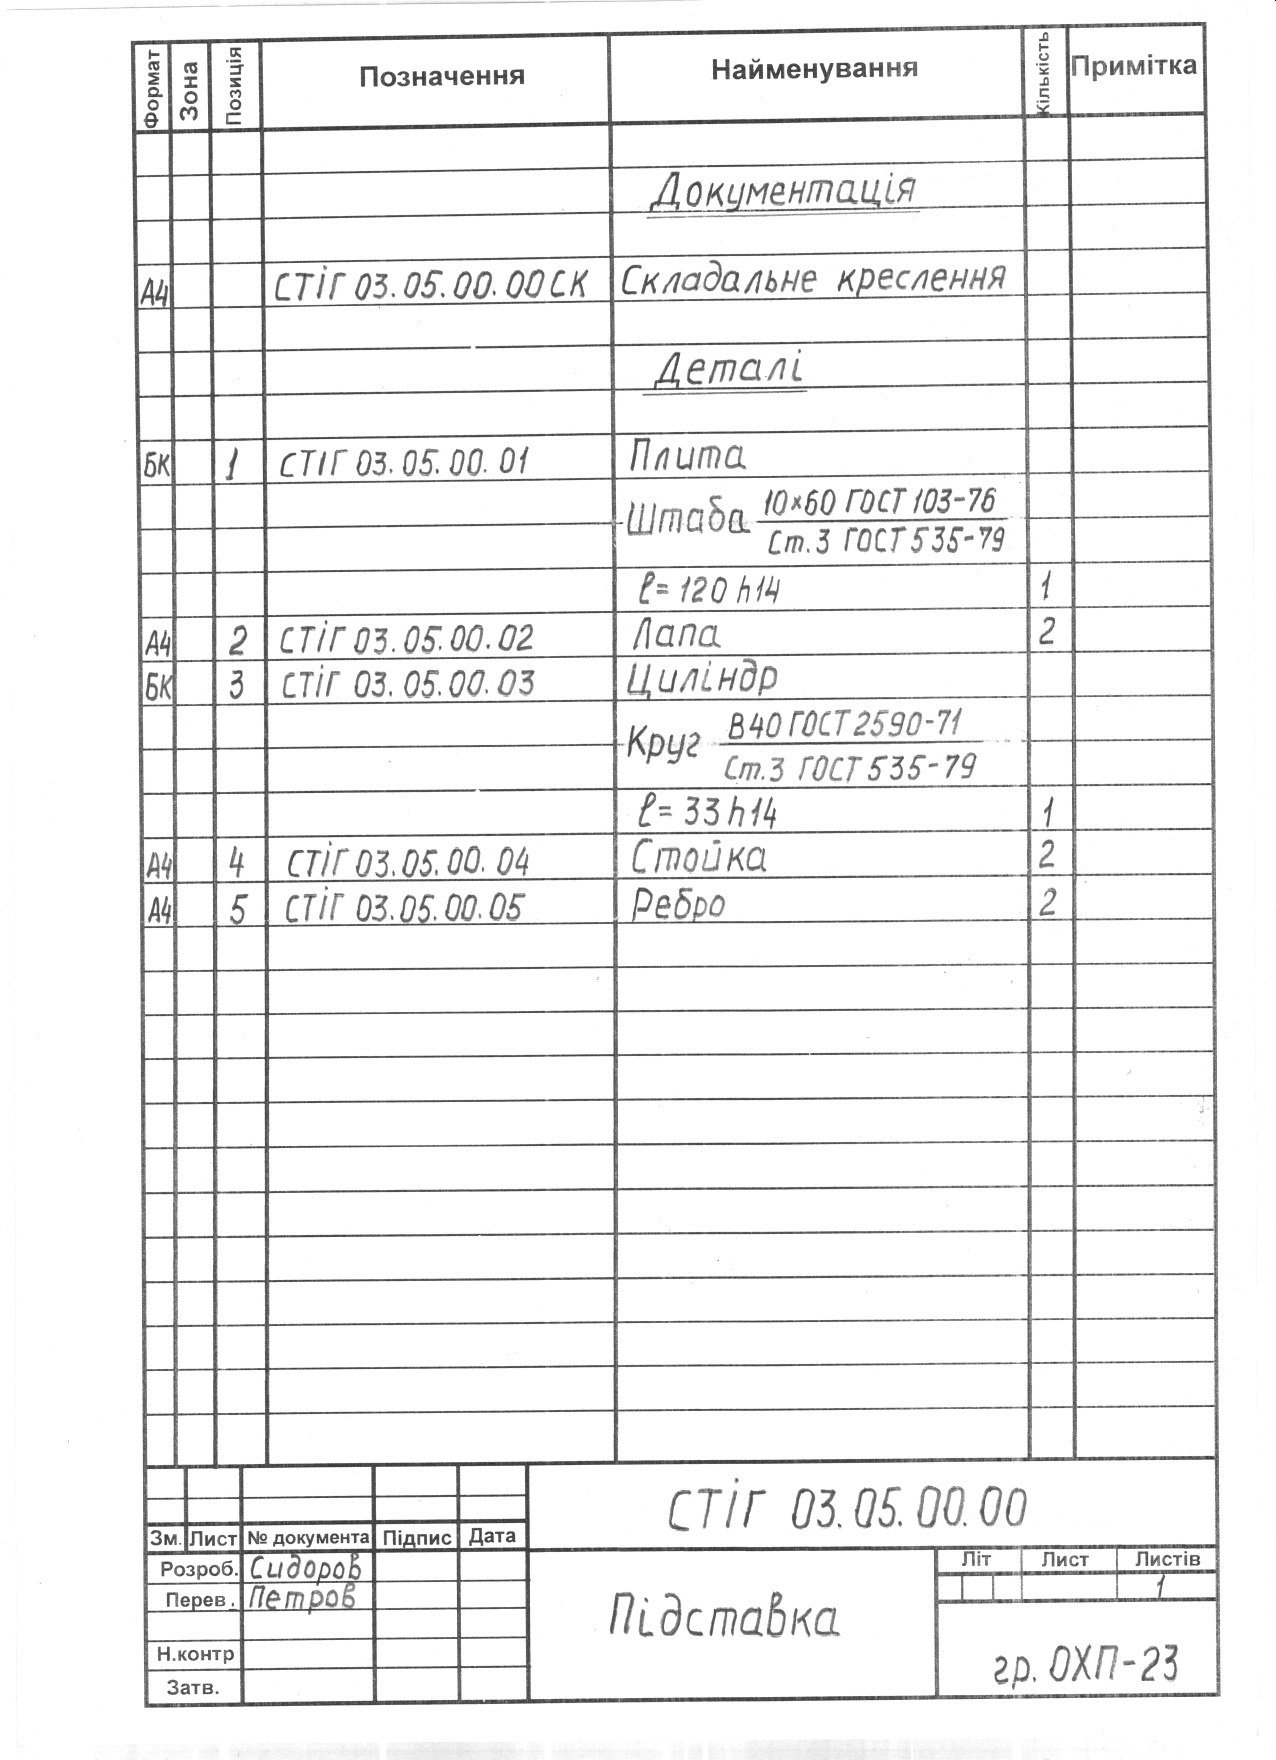 Формат Зона Позиція Позначення Найменування Кількість Примітка
Документація
А4 СТІГ 03.05.00.00СК Складальне креслення
Деталі
БК 1 СТІГ 03.05.00.01 Плита
Штаба 10×60 ГОСТ 103-76
Ст.3 ГОСТ 535-79
ℓ= 120 h14 1
А4 2 СТІГ 03.05.00.02 Лапа 2
БК 3 СТІГ 03.05.00.03 Циліндр
Круг В40 ГОСТ 2590-71
Ст.3 ГОСТ 535-79
ℓ= 33 h14 1
А4 4 СТІГ 03.05.00.04 Стойка 2
А4 5 СТІГ 03.05.00.05 Ребро 2
СТІГ 03.05.00.00
Зм. Лист № документа Підпис Дата
Розроб. Сидоров
Перев. Петров
Н.контр
Затв.
Підставка
Літ Лист Листів
1
гр. ОХП-23